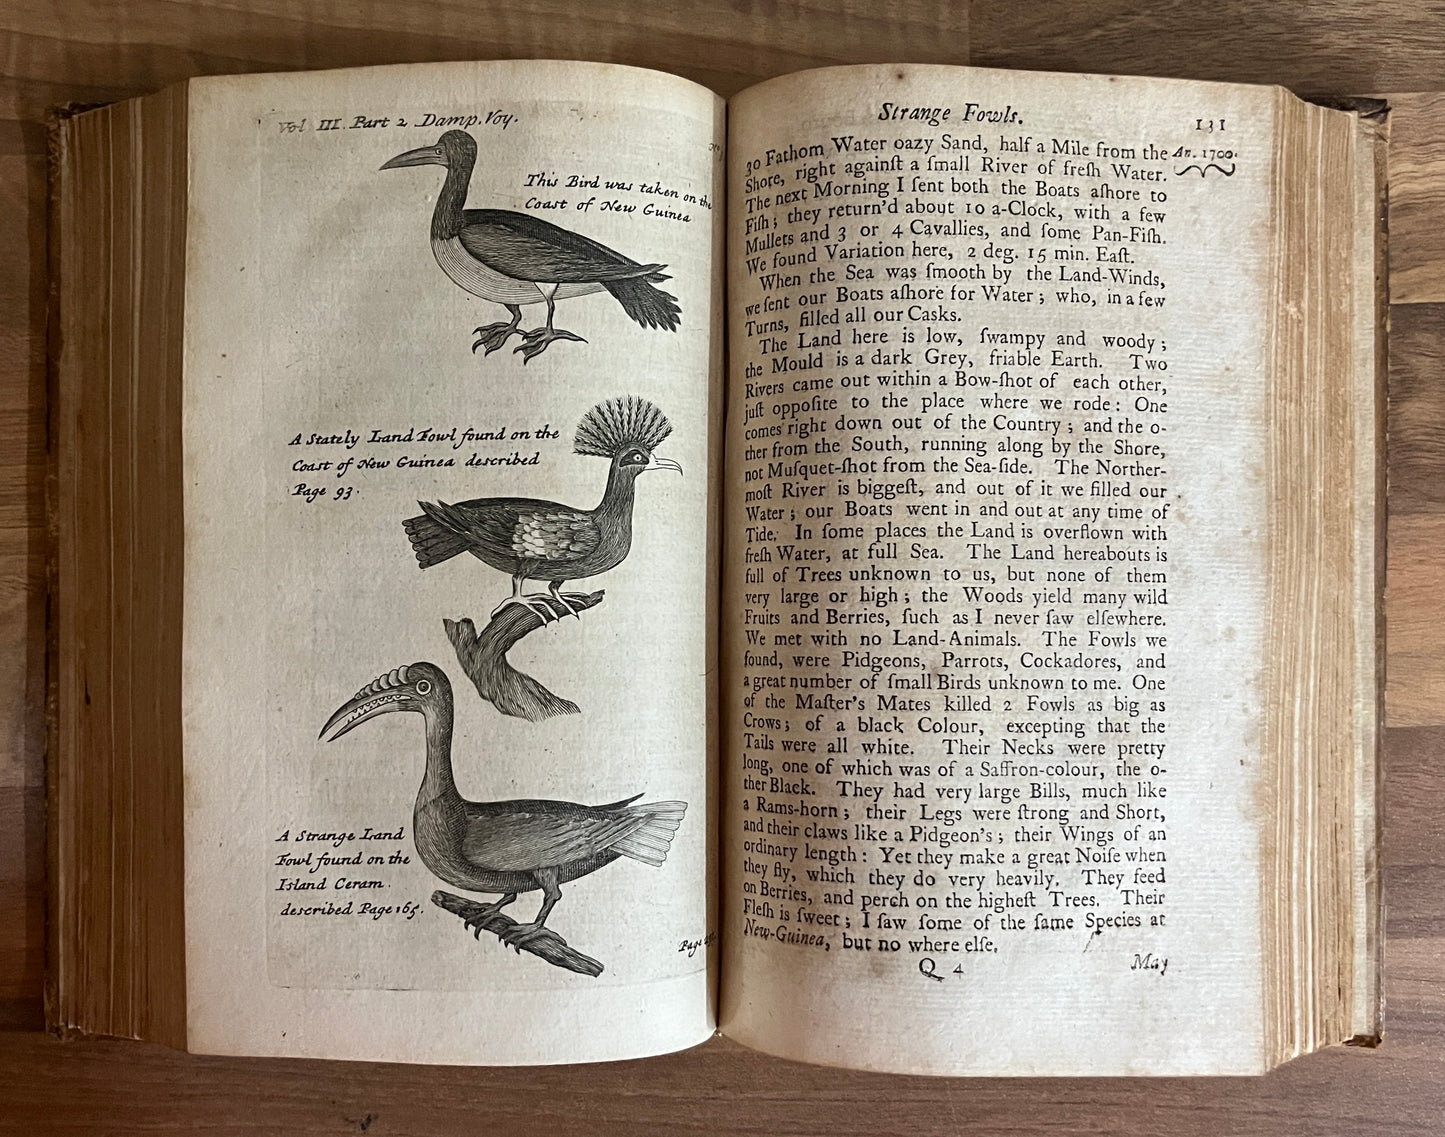 Vol III. Part 2 Damp. Voy.
This Bird was taken on the
Coast of New Guinea
A Stately Land Fowl found on the
Coast of New Guinea described
Page 93.
A Strange Land
Fowl found on the
Island Ceram.
described Page 165.
Page
Strange Fowls.
131
30 Fathom Water oazy Sand, half a Mile from the
An. 1700.
Shore, right againſt a ſmall River of freſh Water.
The next Morning I ſent both the Boats aſhore to
Fiſh; they return'd about 10 a-Clock, with a few
Mullets and 3 or 4 Cavallies, and ſome Pan-Fiſh.
We found Variation here, 2 deg. 15 min. Eaſt.
When the Sea was ſmooth by the Land-Winds,
we ſent our Boats aſhore for Water; who, in a few
Turns, filled all our Casks.
The Land here is low, ſwampy and woody;
the Mould is a dark Grey, friable Earth. Two
Rivers came out within a Bow-ſhot of each other,
juſt oppoſite to the place where we rode: One
comes right down out of the Country; and the o-
ther from the South, running along by the Shore,
not Muſquet-ſhot from the Sea-ſide. The Norther-
moſt River is biggeſt, and out of it we filled our
Water; our Boats went in and out at any time of
Tide. In ſome places the Land is overflown with
freſh Water, at full Sea. The Land hereabouts is
full of Trees unknown to us, but none of them
very large or high; the Woods yield many wild
Fruits and Berries, ſuch as I never ſaw elſewhere.
We met with no Land-Animals. The Fowls we
found, were Pidgeons, Parrots, Cockadores, and
a great number of ſmall Birds unknown to me. One
of the Maſter's Mates killed 2 Fowls as big as
Crows; of a black Colour, excepting that the
Tails were all white. Their Necks were pretty
long, one of which was of a Saffron-colour, the o-
ther Black. They had very large Bills, much like
a Rams-horn; their Legs were ſtrong and Short,
and their claws like a Pidgeon's; their Wings of an
ordinary length: Yet they make a great Noiſe when
they fly, which they do very heavily. They feed
on Berries, and perch on the higheſt Trees. Their
Fleſh is ſweet; I ſaw ſome of the ſame Species at
New-Guinea, but no where elſe.
Q 4
May